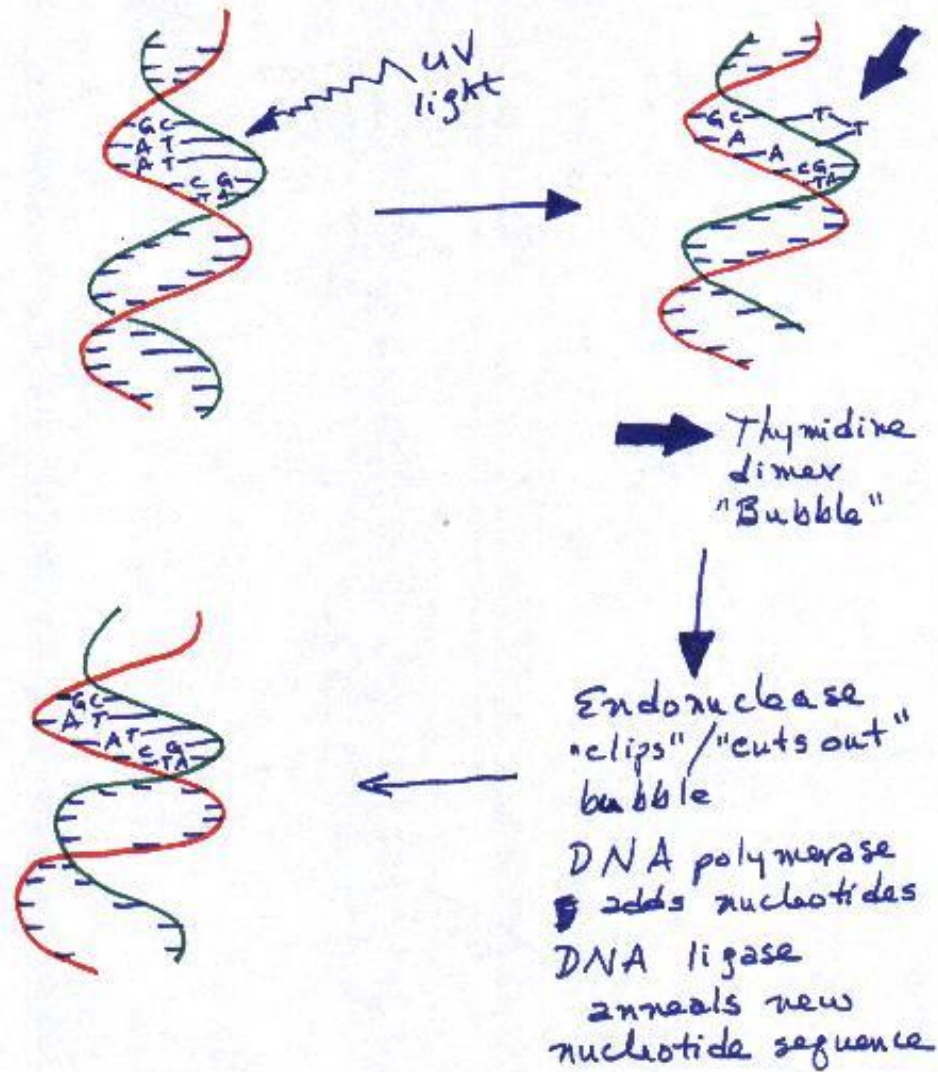 UV
light
GC
AT
AT
CG
TA
GC
T
T
A
A
CG
TA
Thymidine
dimer
"Bubble"
Endonuclease
"clips"/"cuts out"
bubble
DNA polymerase
adds nucleotides
DNA ligase
anneals new
nucleotide sequence
GC
AT
AT
CG
TA